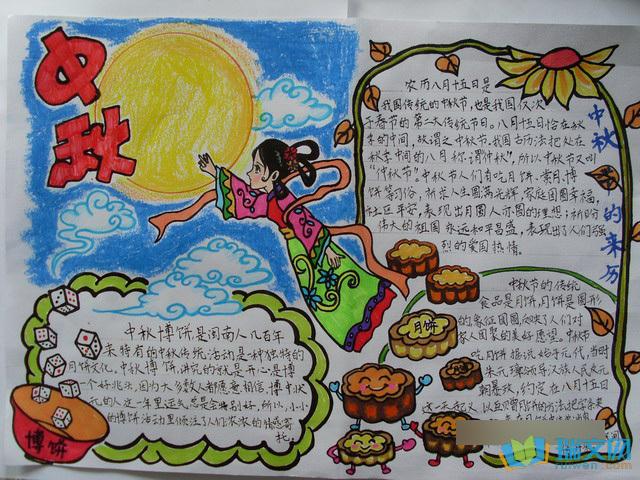 中秋
农历八月十五日是
我国传统的中秋节,也是我国仅次
于春节的第二大传统节日。八月十五恰在秋
季的中间,故谓之中秋节。我国古历法把处在
秋季中间的八月称谓“仲秋”,所以中秋节又叫
“仲秋节”。中秋节人们有吃月饼、赏月、博
饼等习俗,祈求人生圆满光辉,家庭团圆幸福,
社区平安,表现出月圆人亦圆的理想;祈盼
伟大的祖国永远和平昌盛,表现了人们强
烈的爱国热情。
中秋的来历
中秋节的传统
食品是月饼,月饼是圆形
家人团聚的美好愿望。中秋节
吃月饼据说始于元代,当时
朱元璋领导汉族人民反元
朝暴政,约定在八月十五日
这一天起义
月饼
中秋博饼,是闽南人几百年
来特有的中秋传统活动,是一种独特的
月饼文化。中秋博饼,讲究的就是开心,是博
一个好兆头,因为大多数人都愿意相信,博中状
元的人这一年里运气总是会特别好。所以,小小
的博饼活动里倾注了人们浓浓的
托。
博饼
瑞文网
ruiwen.com